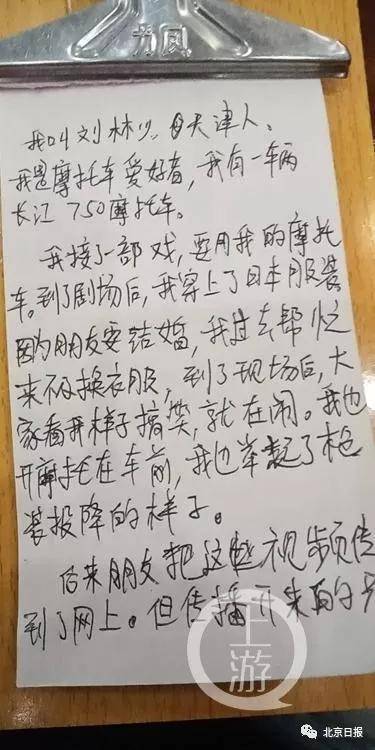 力风
我叫刘林
天津人。
我是摩托车爱好者，我有一车两
长江750摩托车。
我接了一部戏，要用我的摩托
车。到了剧场后，我穿上了日本服装
因为朋友要结婚，我过去帮忙
来不及换衣服，到了现场后，大
家看我样子搞笑，就在闹。我也
开摩托在车前，我也举起了枪
装投降的样子。
后来朋友把这些视频传
到了网上。但传播开来的
上游
北京日报